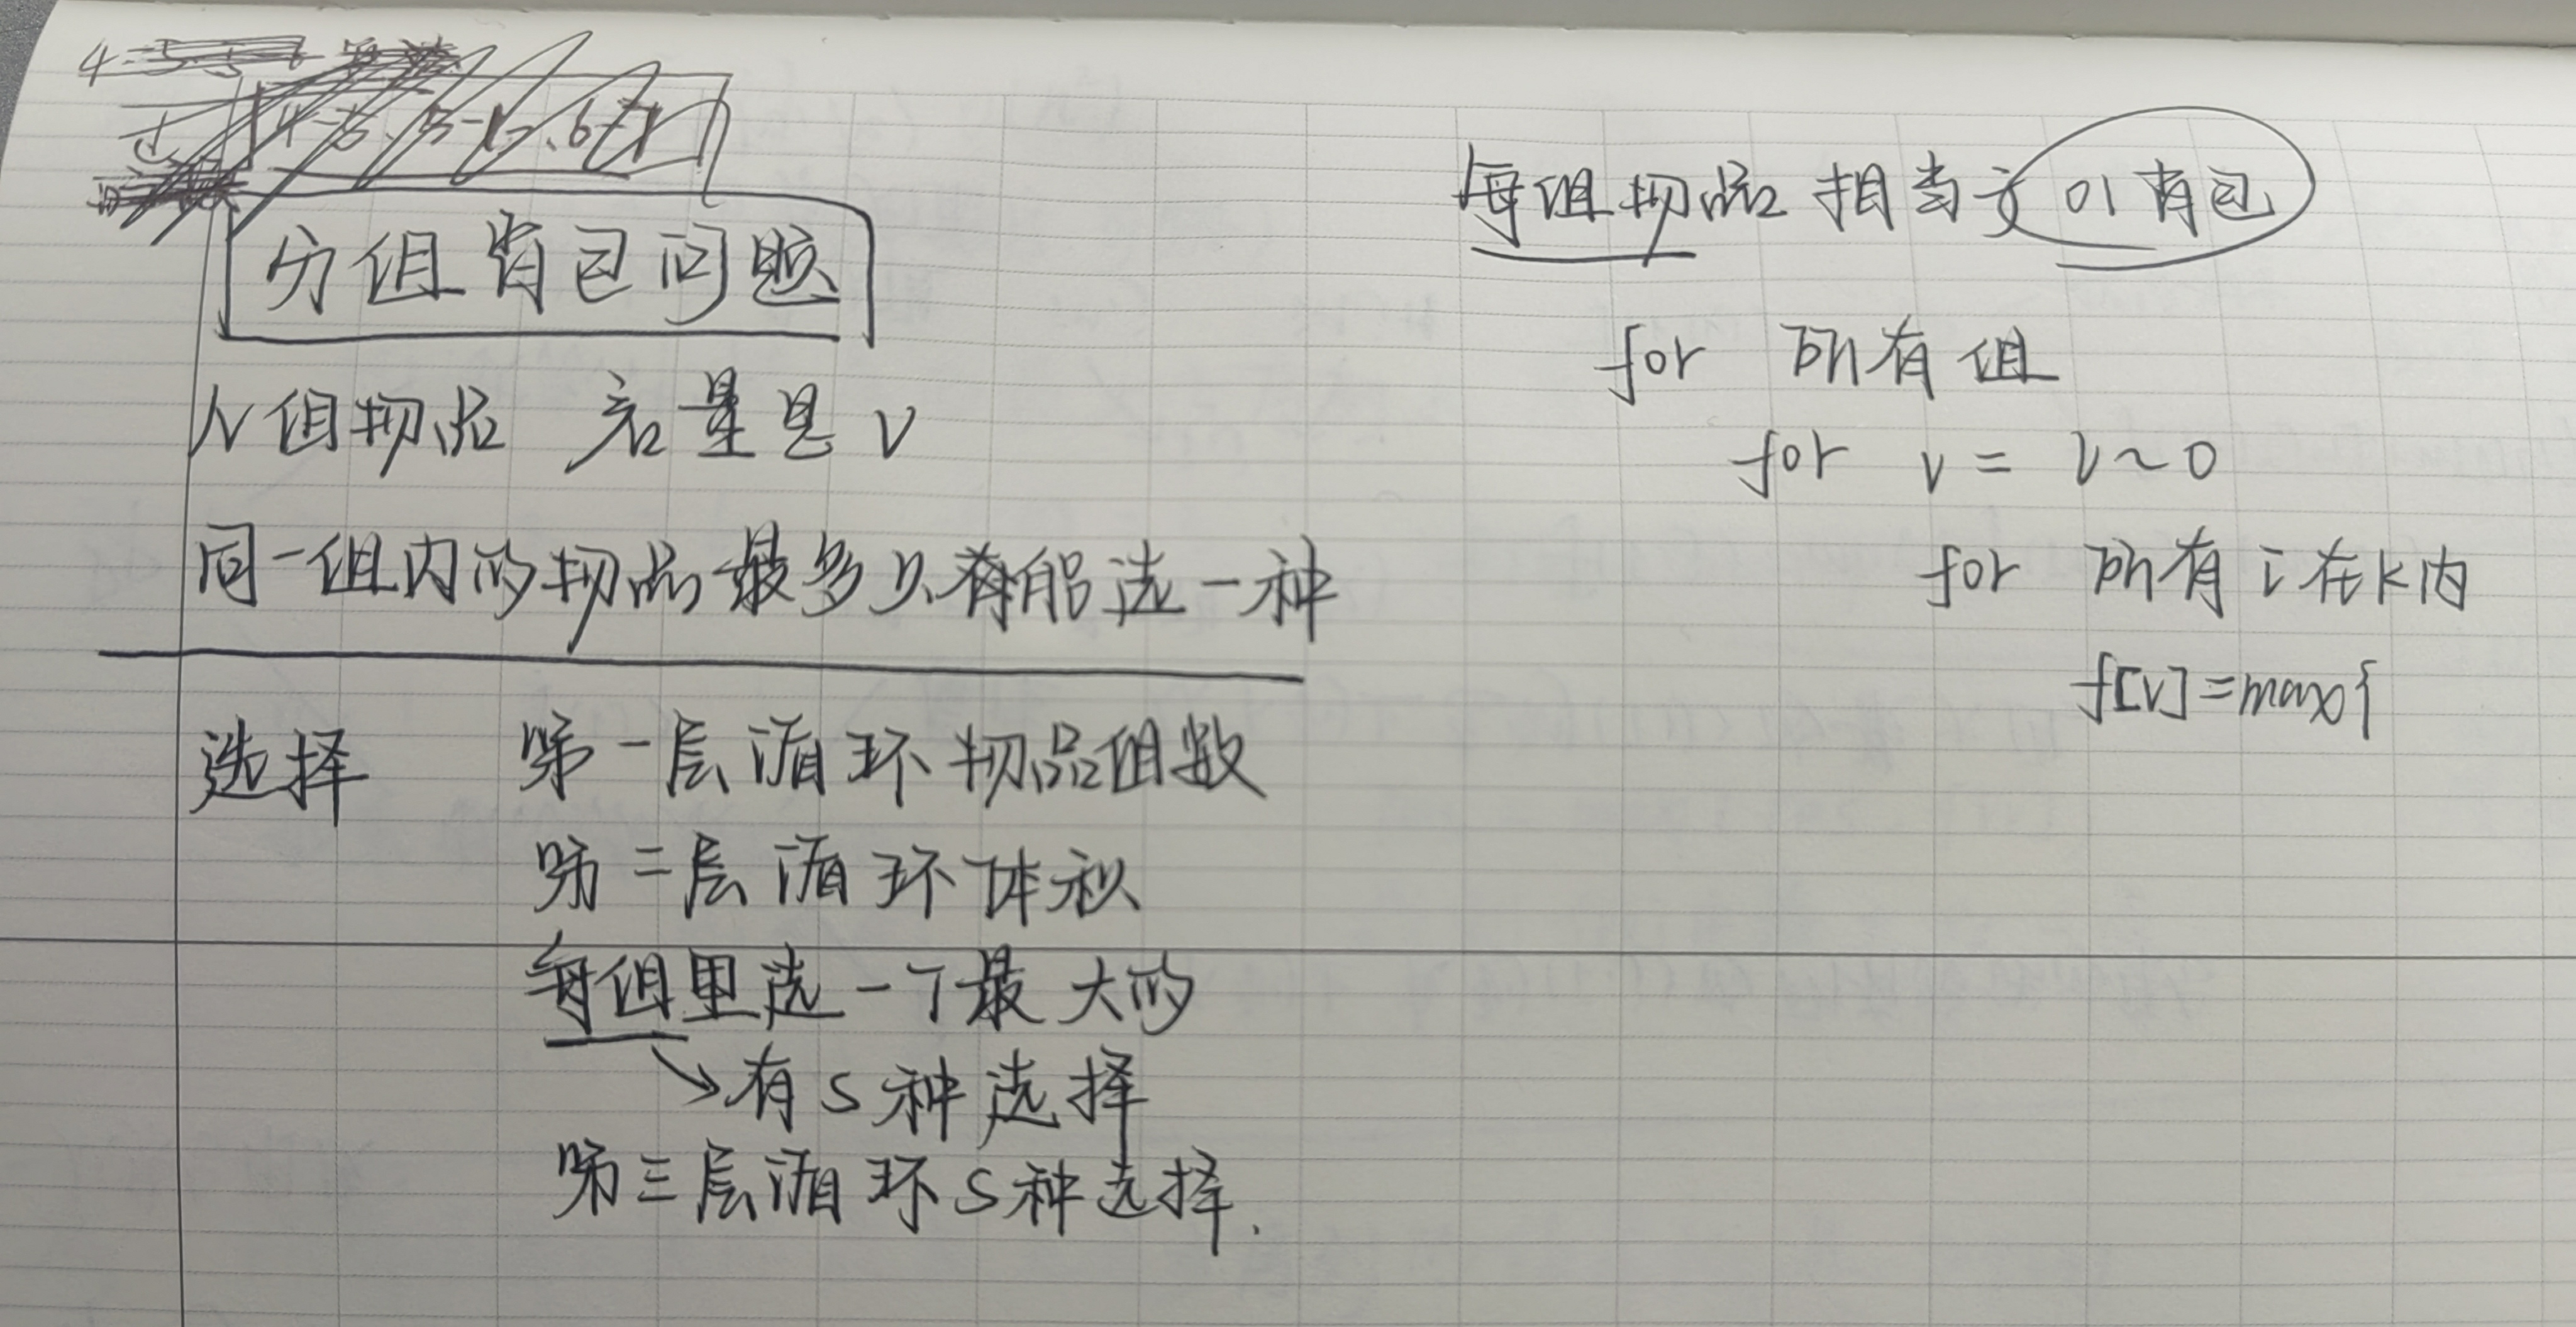 分组背包问题
N组物品 容量是V
同一组内的物品最多只能选一种
选择 第一层循环物品组数
第二层循环体积
每组里选一个最大的
→有S种选择
第三层循环S种选择.
每组物品相当于01背包
for 所有组
for v = V~0
for 所有i在k内
f[v]=max{